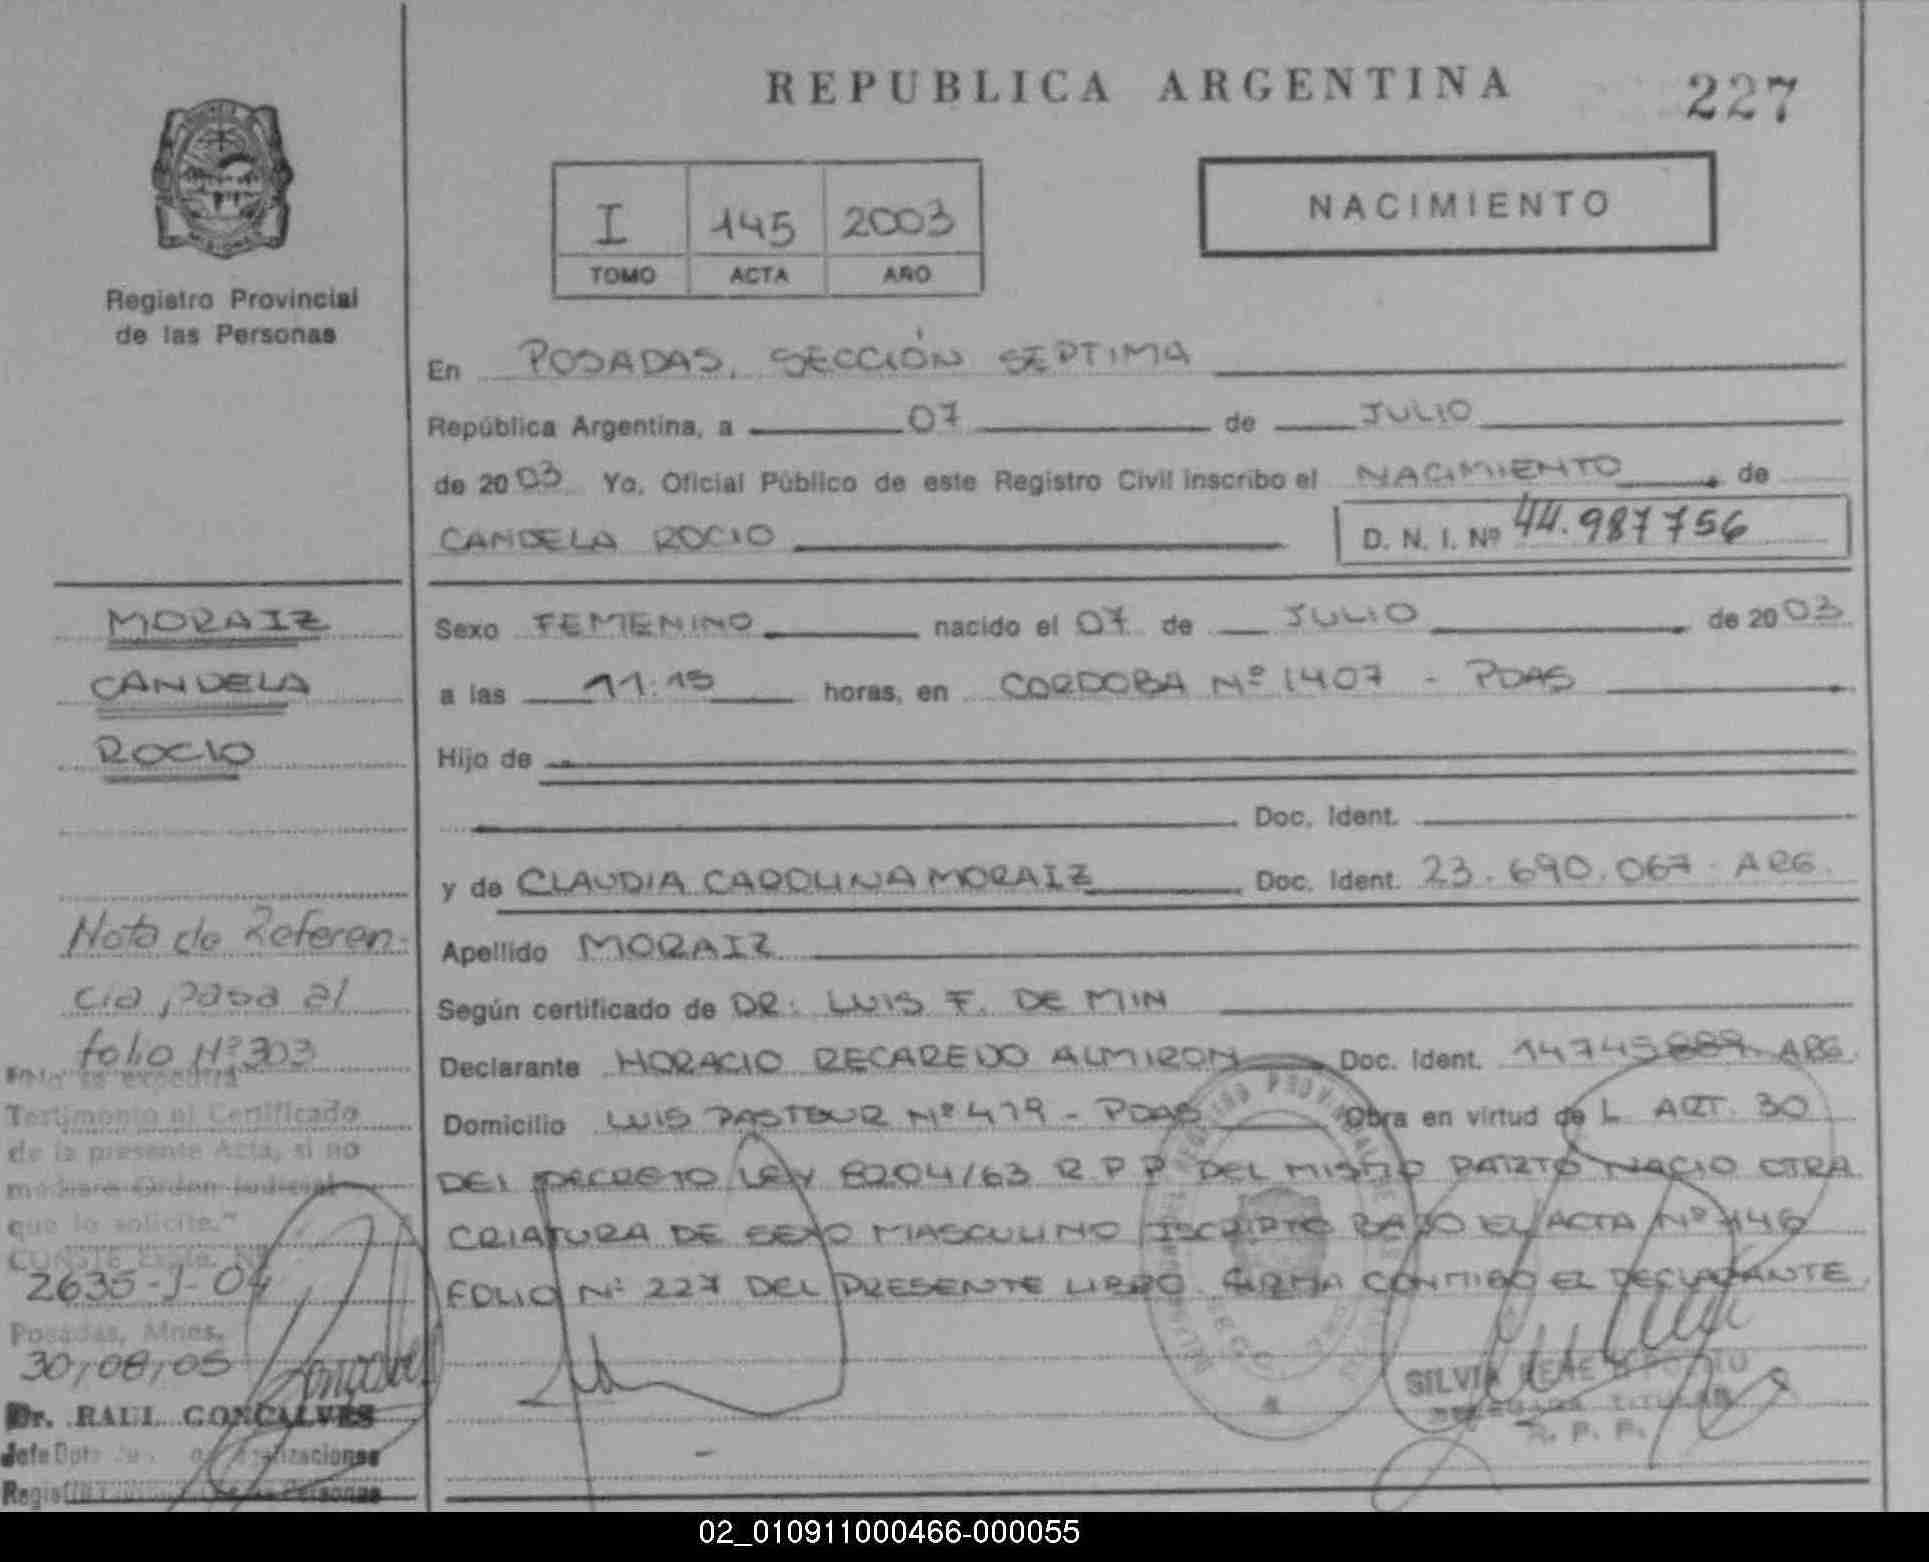 REPUBLICA ARGENTINA
227
I 145 2003
TOMO ACTA AÑO
NACIMIENTO
Registro Provincial
de las Personas
En POSADAS, SECCIÓN SEPTIMA
República Argentina, a 07 de JULIO
de 2003 Yo, Oficial Público de este Registro Civil inscribo el NACIMIENTO de
CANDELA ROCIO D. N. I. Nº 44.987756
MORAIZ
CANDELA
ROCIO
Sexo FEMENINO nacido el 07 de JULIO de 2003
a las 11:15 horas, en CORDOBA Nº 1407 - PDAS
Hijo de
Doc. Ident.
y de CLAUDIA CAROLINA MORAIZ Doc. Ident. 23.690.067 ARG.
Apellido MORAIZ
Según certificado de DR: LUIS F. DE MIN
Declarante HORACIO RECAREDO ALMIRON Doc. Ident. 14745889 ARG.
Domicilio LUIS PASTEUR Nº 479 - PDAS Obra en virtud de L ART. 30
DEL DECRETO LEY 8204/63 R.P.P. DEL MISMO PARTO NACIO OTRA
CRIATURA DE SEXO MASCULINO ISCRIPTO BAJO EL ACTA Nº 146
FOLIO Nº 227 DEL PRESENTE LIBRO. FIRMA CONMIGO EL DECLARANTE
Nota de Referen-
cia, pasa al
folio Nº 303
"No se expedirá
Testimonio ni Certificado
de la presente Acta, si no
mediare Orden Judicial
que lo solicite."
CONSTE Expte. Nº
2635-J-04
Posadas, Mnes.
30/08/05
Dr. RAUL GONCALVES
Jefe Dpto
Personas
SILVIA
DELEGADA TITULAR
R. P. P.
02_010911000466-000055